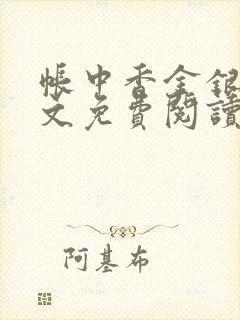 帳中香金銀
文免費閱讀
阿基布